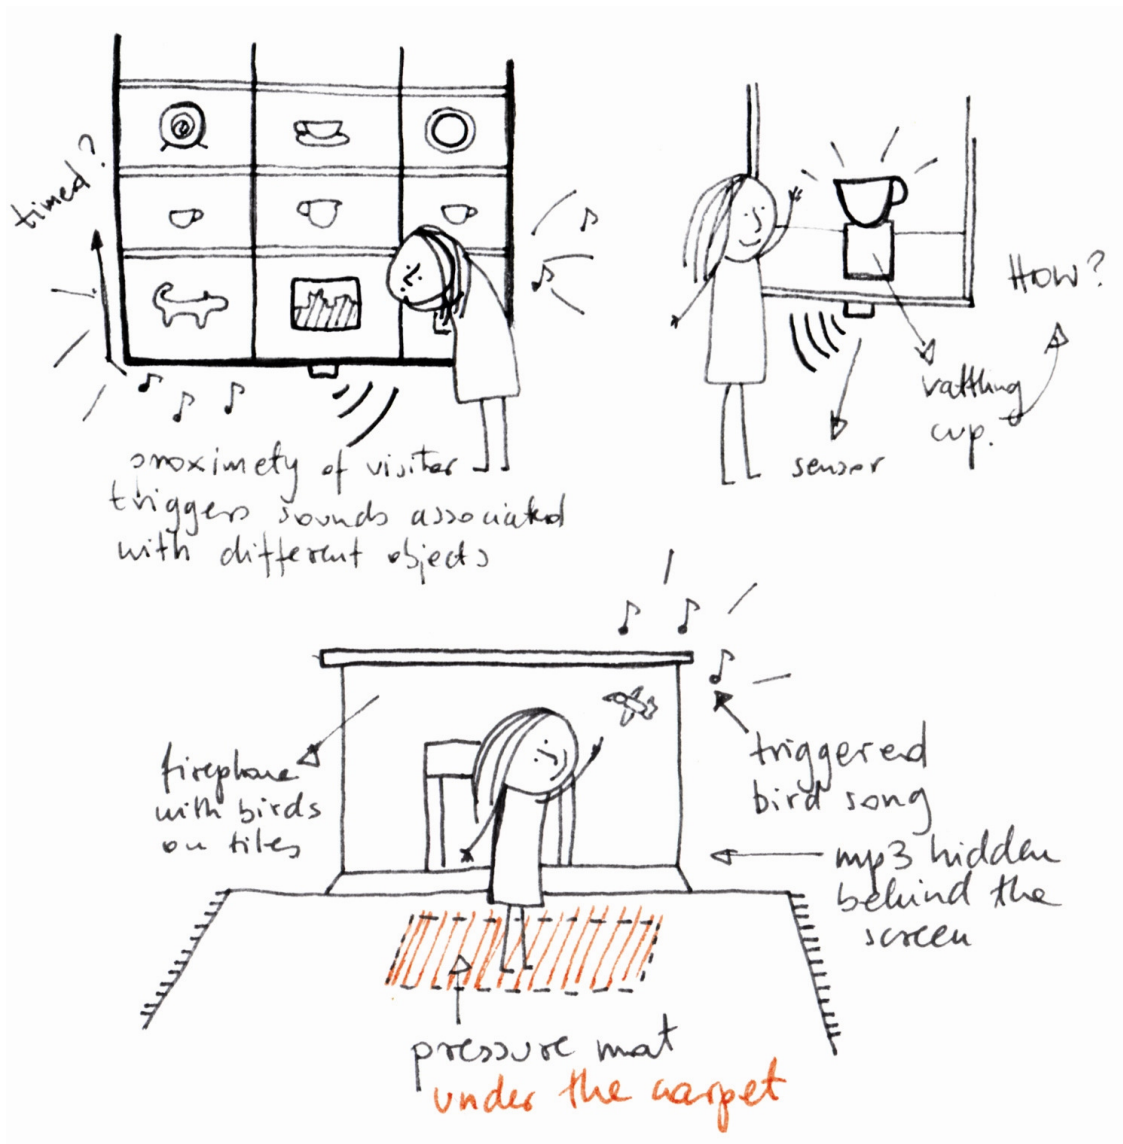 timed?
proximety of visitor
triggers sounds associated
with different objects
HOW?
rattling
cup.
sensor
fireplace
with birds
on tiles
triggered
bird song
mp3 hidden
behind the
screen
pressure mat
under the carpet